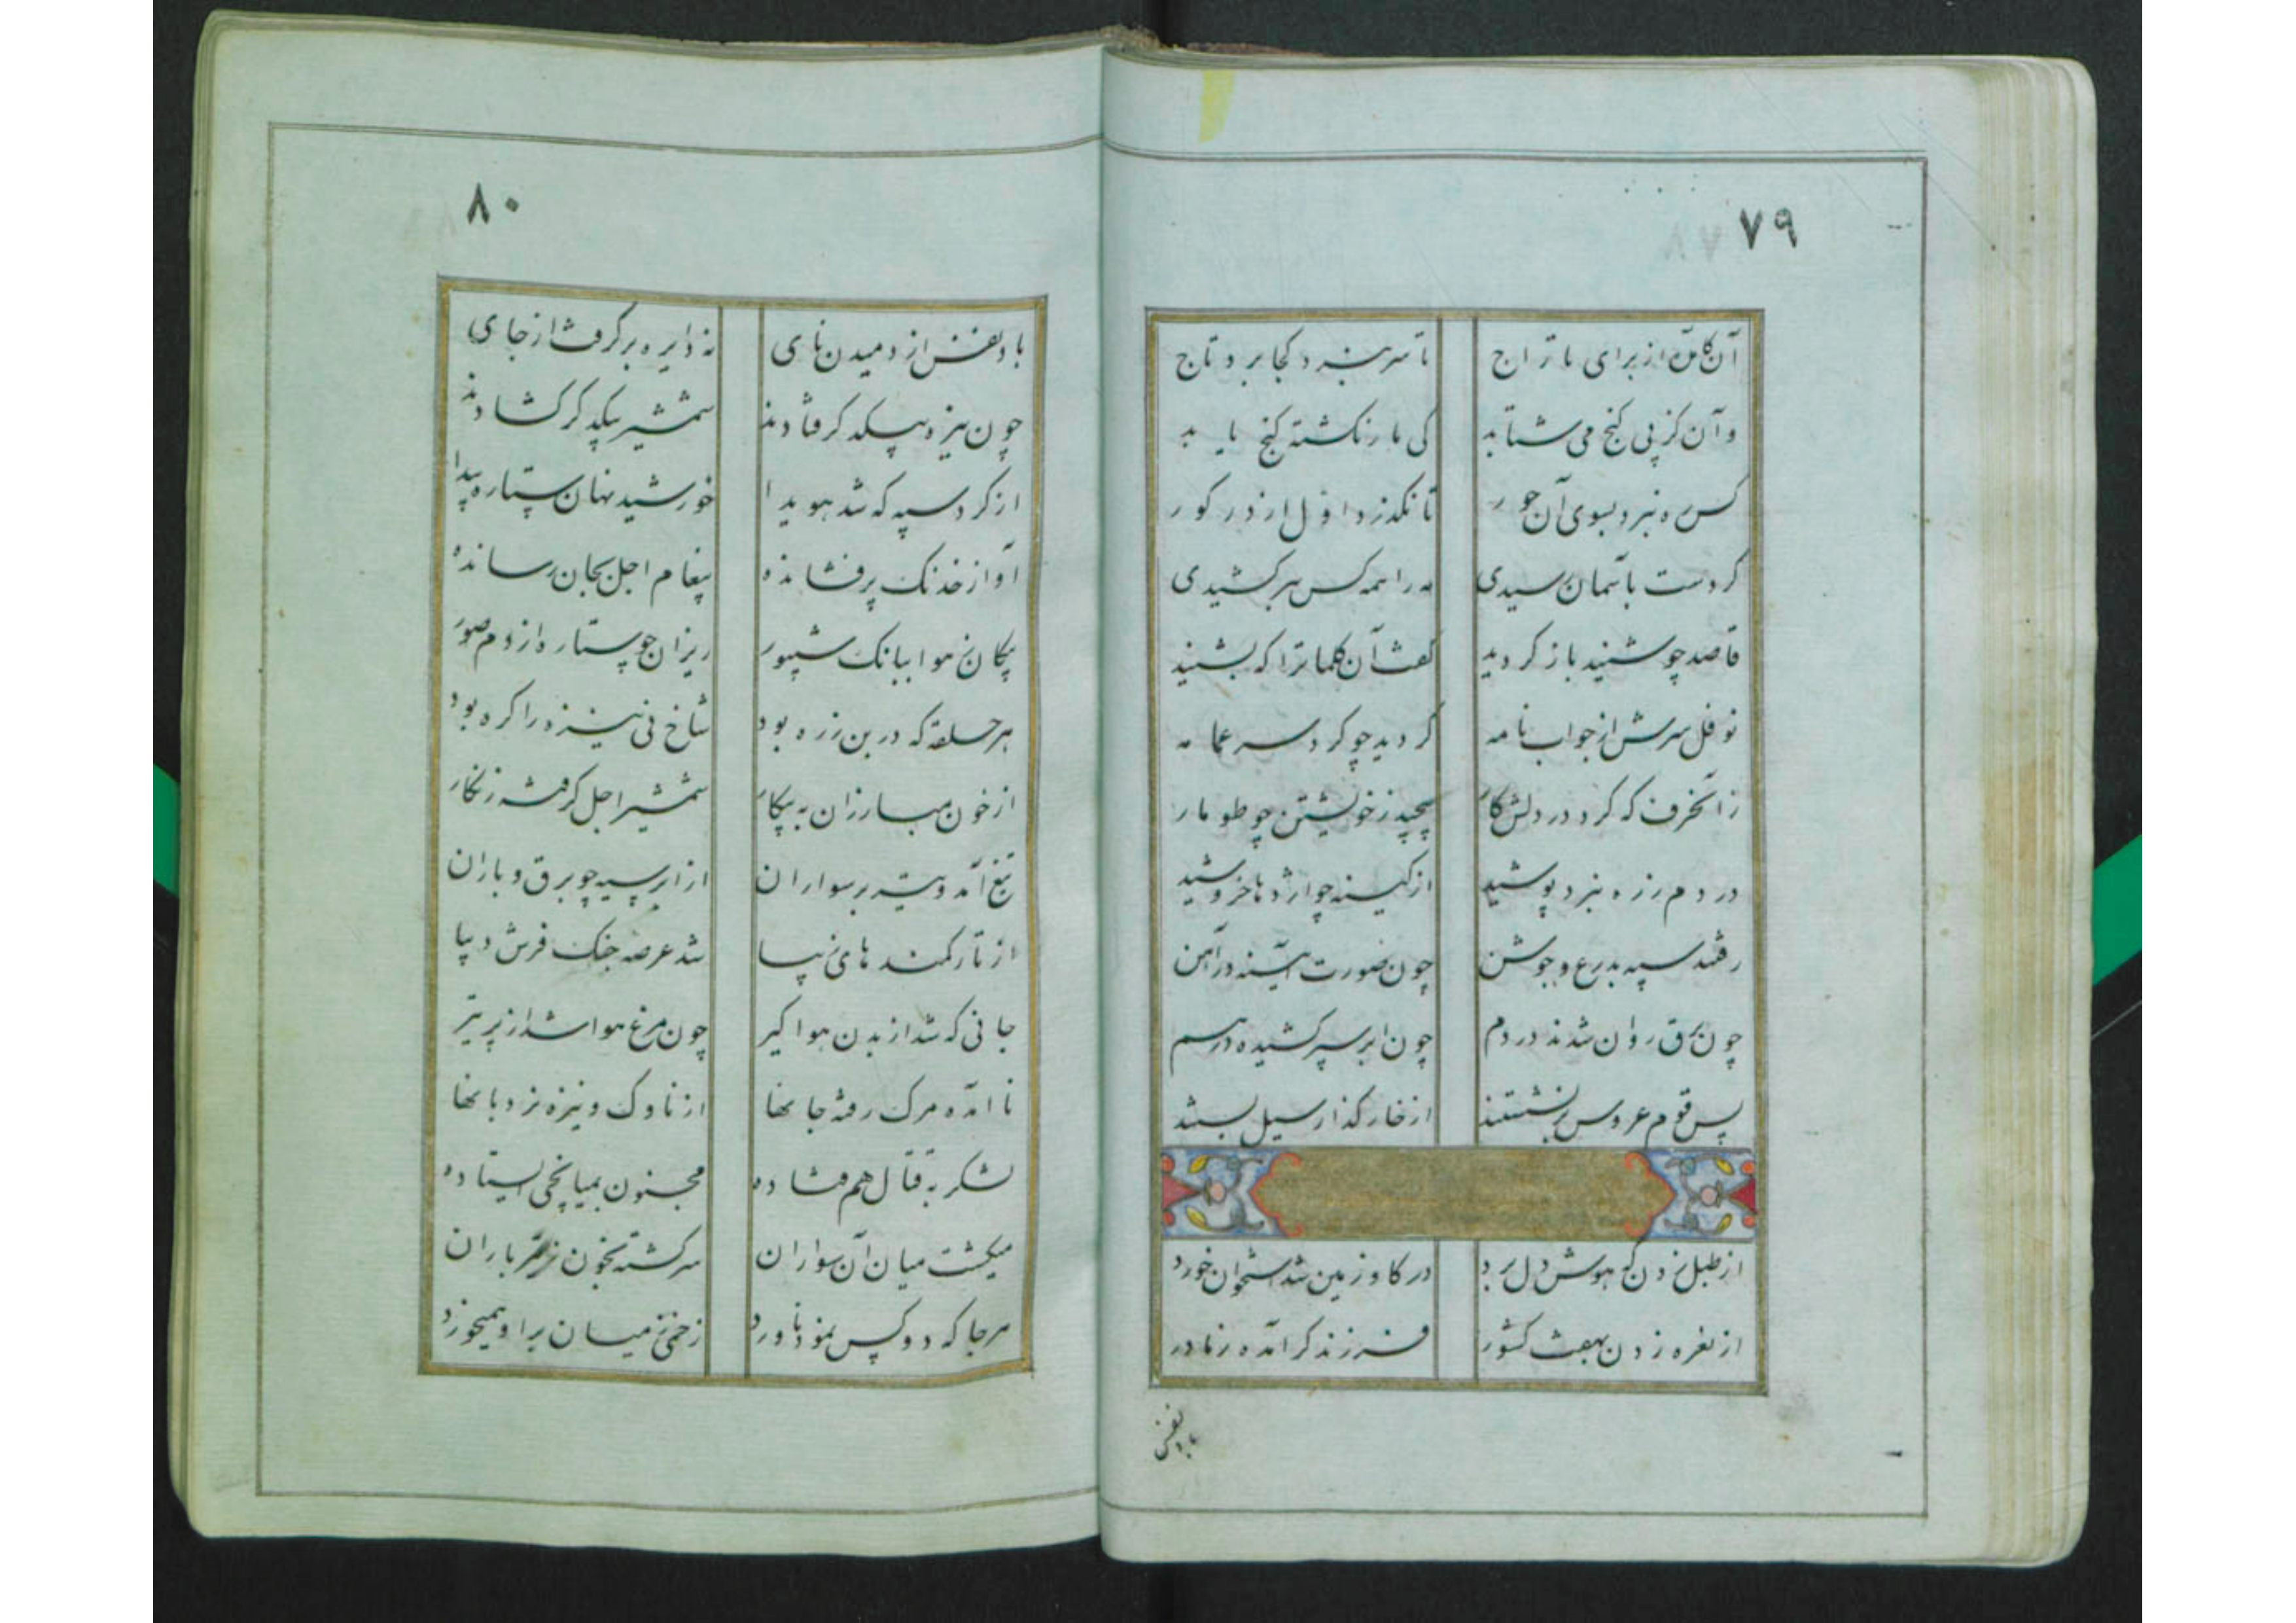 ۷۹
آن کامده از برای تاراج    تا سر ننهد کجا برد تاج
وآن کز پی گنج می شتابد    کی مار نکشته گنج یابد
کس ره نبرد بسوی آن حور    تا نگذرد اول از در گور
گر دست بآسمان رسیدی    مه را همه کس ببر کشیدی
قاصد چو شنید باز گردید    گفت آن کلماترا که بشنید
نوفل سرش از جواب نامه    گردید چو گرد سر عمامه
زانحرف که کرد در دلش کار    پیچید ز خویشتن چو طومار
در دم زره نبرد پوشید    از کینه چو اژدها خروشید
رفتند سپه بدرع و جوشن    چون صورت آینه در آهن
چون برق روان شدند در دم    چون ابر سپر کشیده در هم
پس قوم عروس برنشستند    از خار گذار سیل بستند
از طبل زدن که هوش دل برد    در گاو زمین شد استخوان خورد
از نعره زدن بهفت کشور    فرزند کر آمده ز مادر
باد نفس
۸۰
باد نفس از دمیدن نای    نه دایره برگرفت از جای
چون نیزه بیکدگر فتادند    شمشیر بیکدگر کشادند
از گرد سپه که شد هویدا    خورشید نهان ستاره پیدا
آواز خدنگ پر فشانده    پیغام اجل بجان رسانده
پیکان ز هوا ببانگ شیپور    ریزان چو ستاره از دم صور
هر حلقه که در بن زره بود    شاخ نی نیزه را گره بود
از خون مبارزان به پیکار    شمشیر اجل گرفته زنگار
تیغ آمد و تیر بر سواران    از ابر سیه چو برق و باران
از تار کمندهای زیبا    شد عرصه جنگ فرش دیبا
جانی که شد از بدن هوا گیر    چون مرغ هوا شد از پر تیر
نا آمده مرگ رفته جانها    از ناوک و نیزه نردبانها
لشکر بقتال هم فتاده    مجنون بمیانجی ایستاده
میگشت میان آن سواران    سرگشته بخون ز تیر باران
هر جا که دو کس نمود ناورد    زخمی ز میان بر او همیخورد